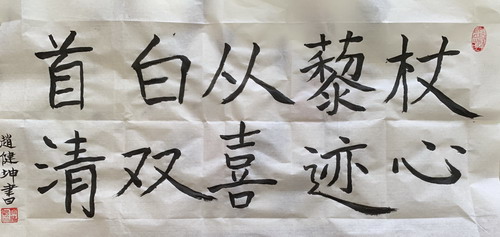 杖藜从白首
心迹喜双清
趙健坤書